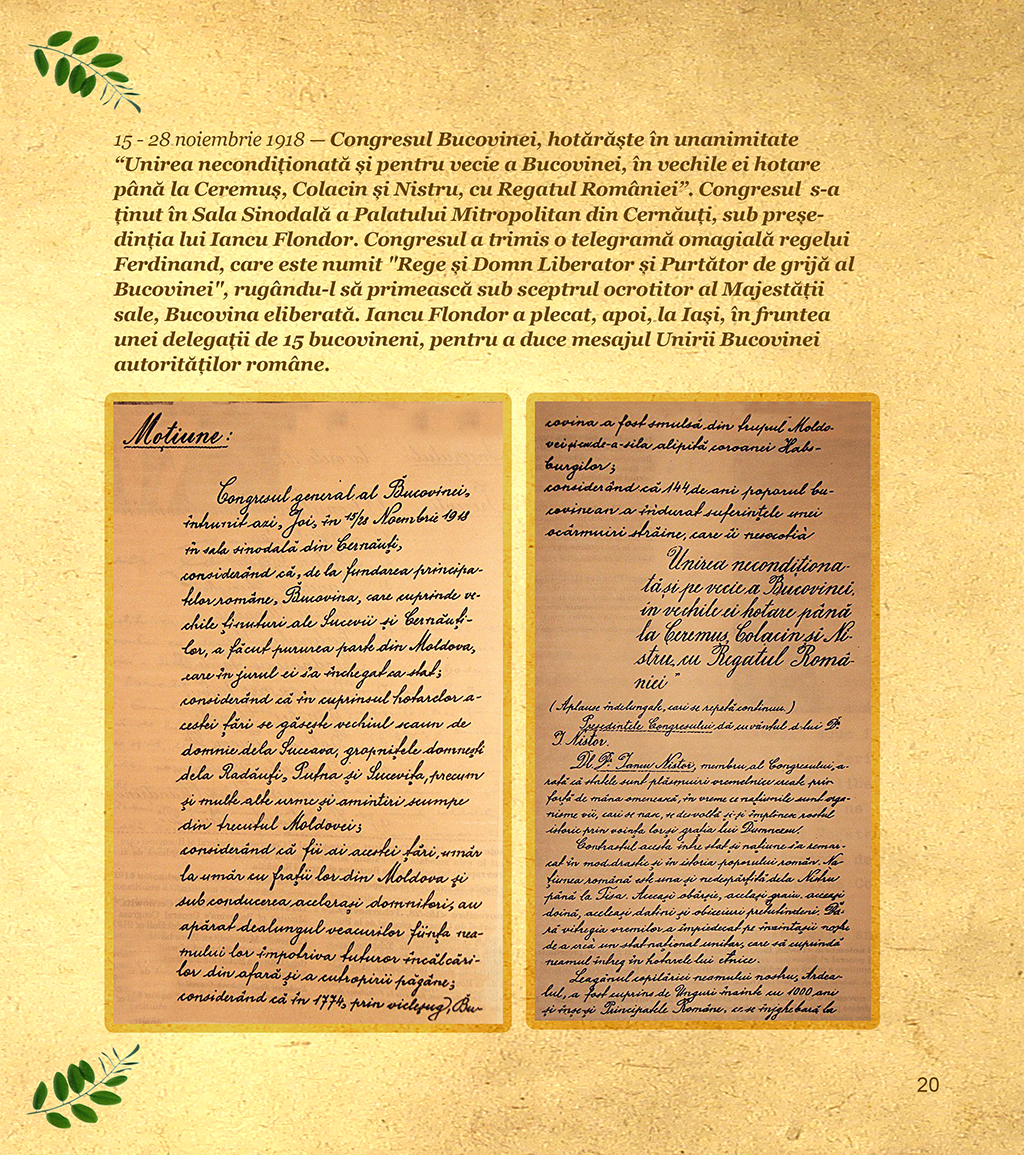 15 - 28 noiembrie 1918 — Congresul Bucovinei, hotărăște în unanimitate
“Unirea necondiționată și pentru vecie a Bucovinei, în vechile ei hotare
până la Ceremuș, Colacin și Nistru, cu Regatul României”. Congresul s-a
ținut în Sala Sinodală a Palatului Mitropolitan din Cernăuți, sub preșe-
dinția lui Iancu Flondor. Congresul a trimis o telegramă omagială regelui
Ferdinand, care este numit "Rege și Domn Liberator și Purtător de grijă al
Bucovinei", rugându-l să primească sub sceptrul ocrotitor al Majestății
sale, Bucovina eliberată. Iancu Flondor a plecat, apoi, la Iași, în fruntea
unei delegații de 15 bucovineni, pentru a duce mesajul Unirii Bucovinei
autorităților române.
Moțiune:
Congresul general al Bucovinei,
întrunit azi, Joi, în 15/28 Noembrie 1918
în sala sinodală din Cernăuți,
considerând că, de la fundarea principa-
telor române, Bucovina, care cuprinde ve-
chile ținuturi ale Sucevii și Cernăuți-
lor, a făcut pururea parte din Moldova,
care în jurul ei s'a închegat ca stat;
considerând că în cuprinsul hotarelor a-
cestei țări se găsește vechiul scaun de
domnie dela Suceava, gropnițele domnești
dela Radăuți, Putna și Sucevița, precum
și multe alte urme și amintiri scumpe
din trecutul Moldovei;
considerând că fii ai acestei țări, umăr
la umăr cu frații lor din Moldova și
sub conducerea acelorași domnitori, au
apărat dealungul veacurilor ființa nea-
mului lor împotriva tuturor încălcări-
lor din afară și a cutropirii păgâne;
considerând că în 1774, prin vicleșug, Bu-
covina a fost smulsă din trupul Moldo-
vei și cu de-a-sila alipită coroanei Habs-
burgilor;
considerând că 144 de ani poporul bu-
covinean a îndurat suferințele unei
ocârmuiri străine, care îi nesocotiă
Unirea necondiționa-
tă și pe vecie a Bucovinei,
în vechile ei hotare până
la Ceremuș, Colacin și Ni-
stru, cu Regatul Româ-
niei”
(Aplause îndelungate, cari se repetă continuu.)
Președintele Congresului dă cuvântul d-lui P.
I. Nistor.
Dl P. Iancu Nistor, membru al Congresului, a-
rată că statele sunt plăsmuiri vremelnice create prin
forță de mâna omenească, în vreme ce națiunile sunt orga-
nisme vii, cari se nasc, se dezvoltă și-și împlinesc rostul
istoric prin voința lor și grația lui Dumnezeu.
Contrastul acesta între stat și națiune s'a remar-
cat în mod drastic și în istoria poporului român. Na-
țiunea română este una și nedespărțită dela Nistru
până la Tisa. Aceeași obârșie, același graiu, aceeași
doină, aceleași datini și obiceiuri pretutindeni. Da-
ră vitregia vremilor a împiedecat pe înaintașii noștri
de a creă un stat național unitar, care să cuprindă
neamul întreg în hotarele lui etnice.
Leagănul copilăriei neamului nostru, Ardea-
lul, a fost cuprins de Unguri înainte cu 1000 ani
și înse-și Principatele Române, ce se înjghebară la
20